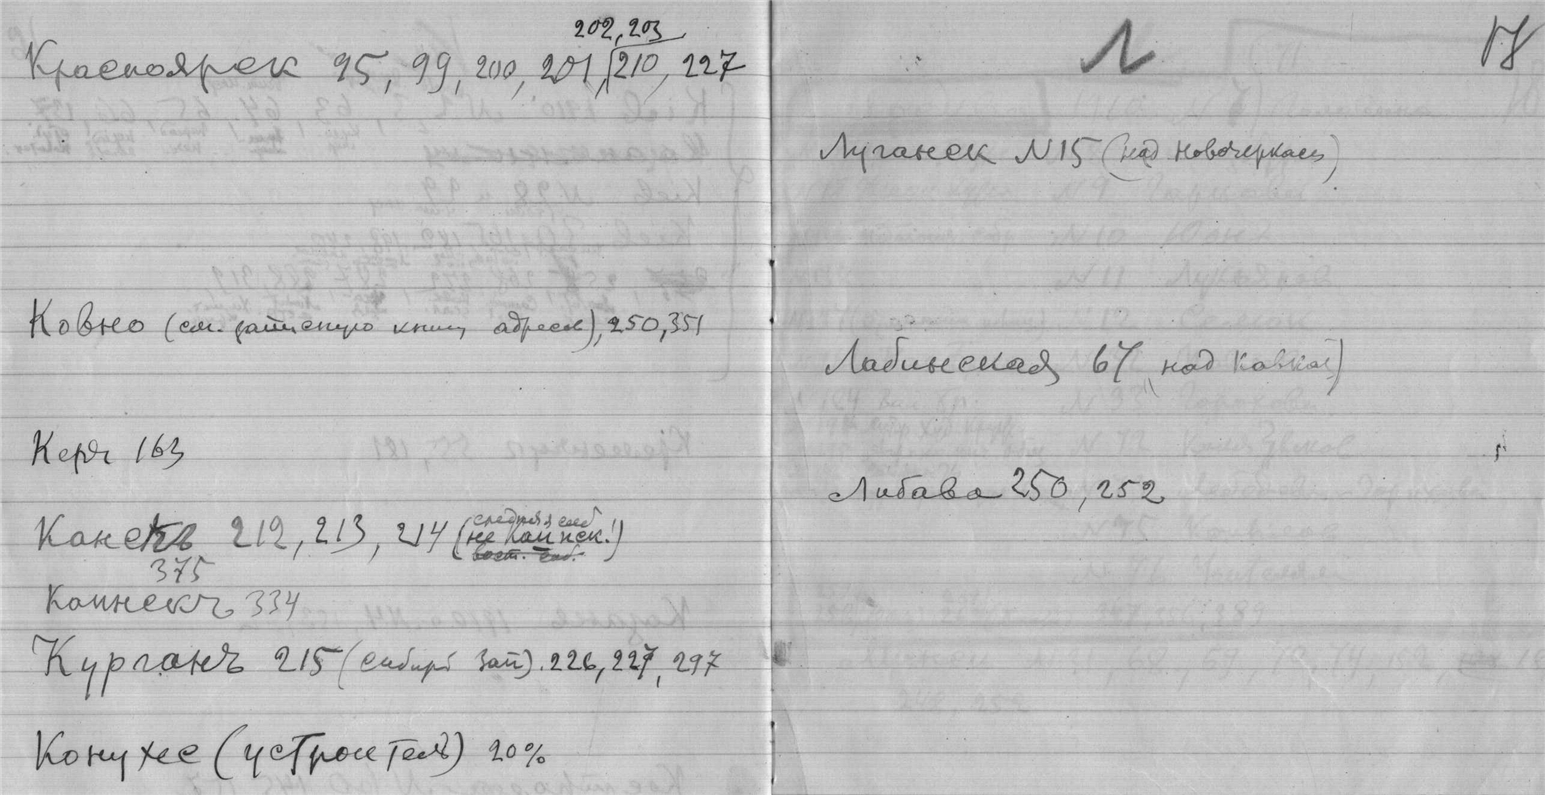 202, 203
Красноярск 95, 99, 200, 201, 210, 227
Ковно (см. записную книгу адресов), 250, 351
Керч 163
Канскъ 212, 213, 214 (средняя сиб
не Каинск!)
вост. сиб.
375
Каинскъ 334
Курганъ 215 (сибирь Зап). 226, 227, 297
Конухес (устроитель) 20%
Л
Луганск N15 (над Новочеркасс)
Лабинская 67 (над Кавказ)
Либава 250, 252